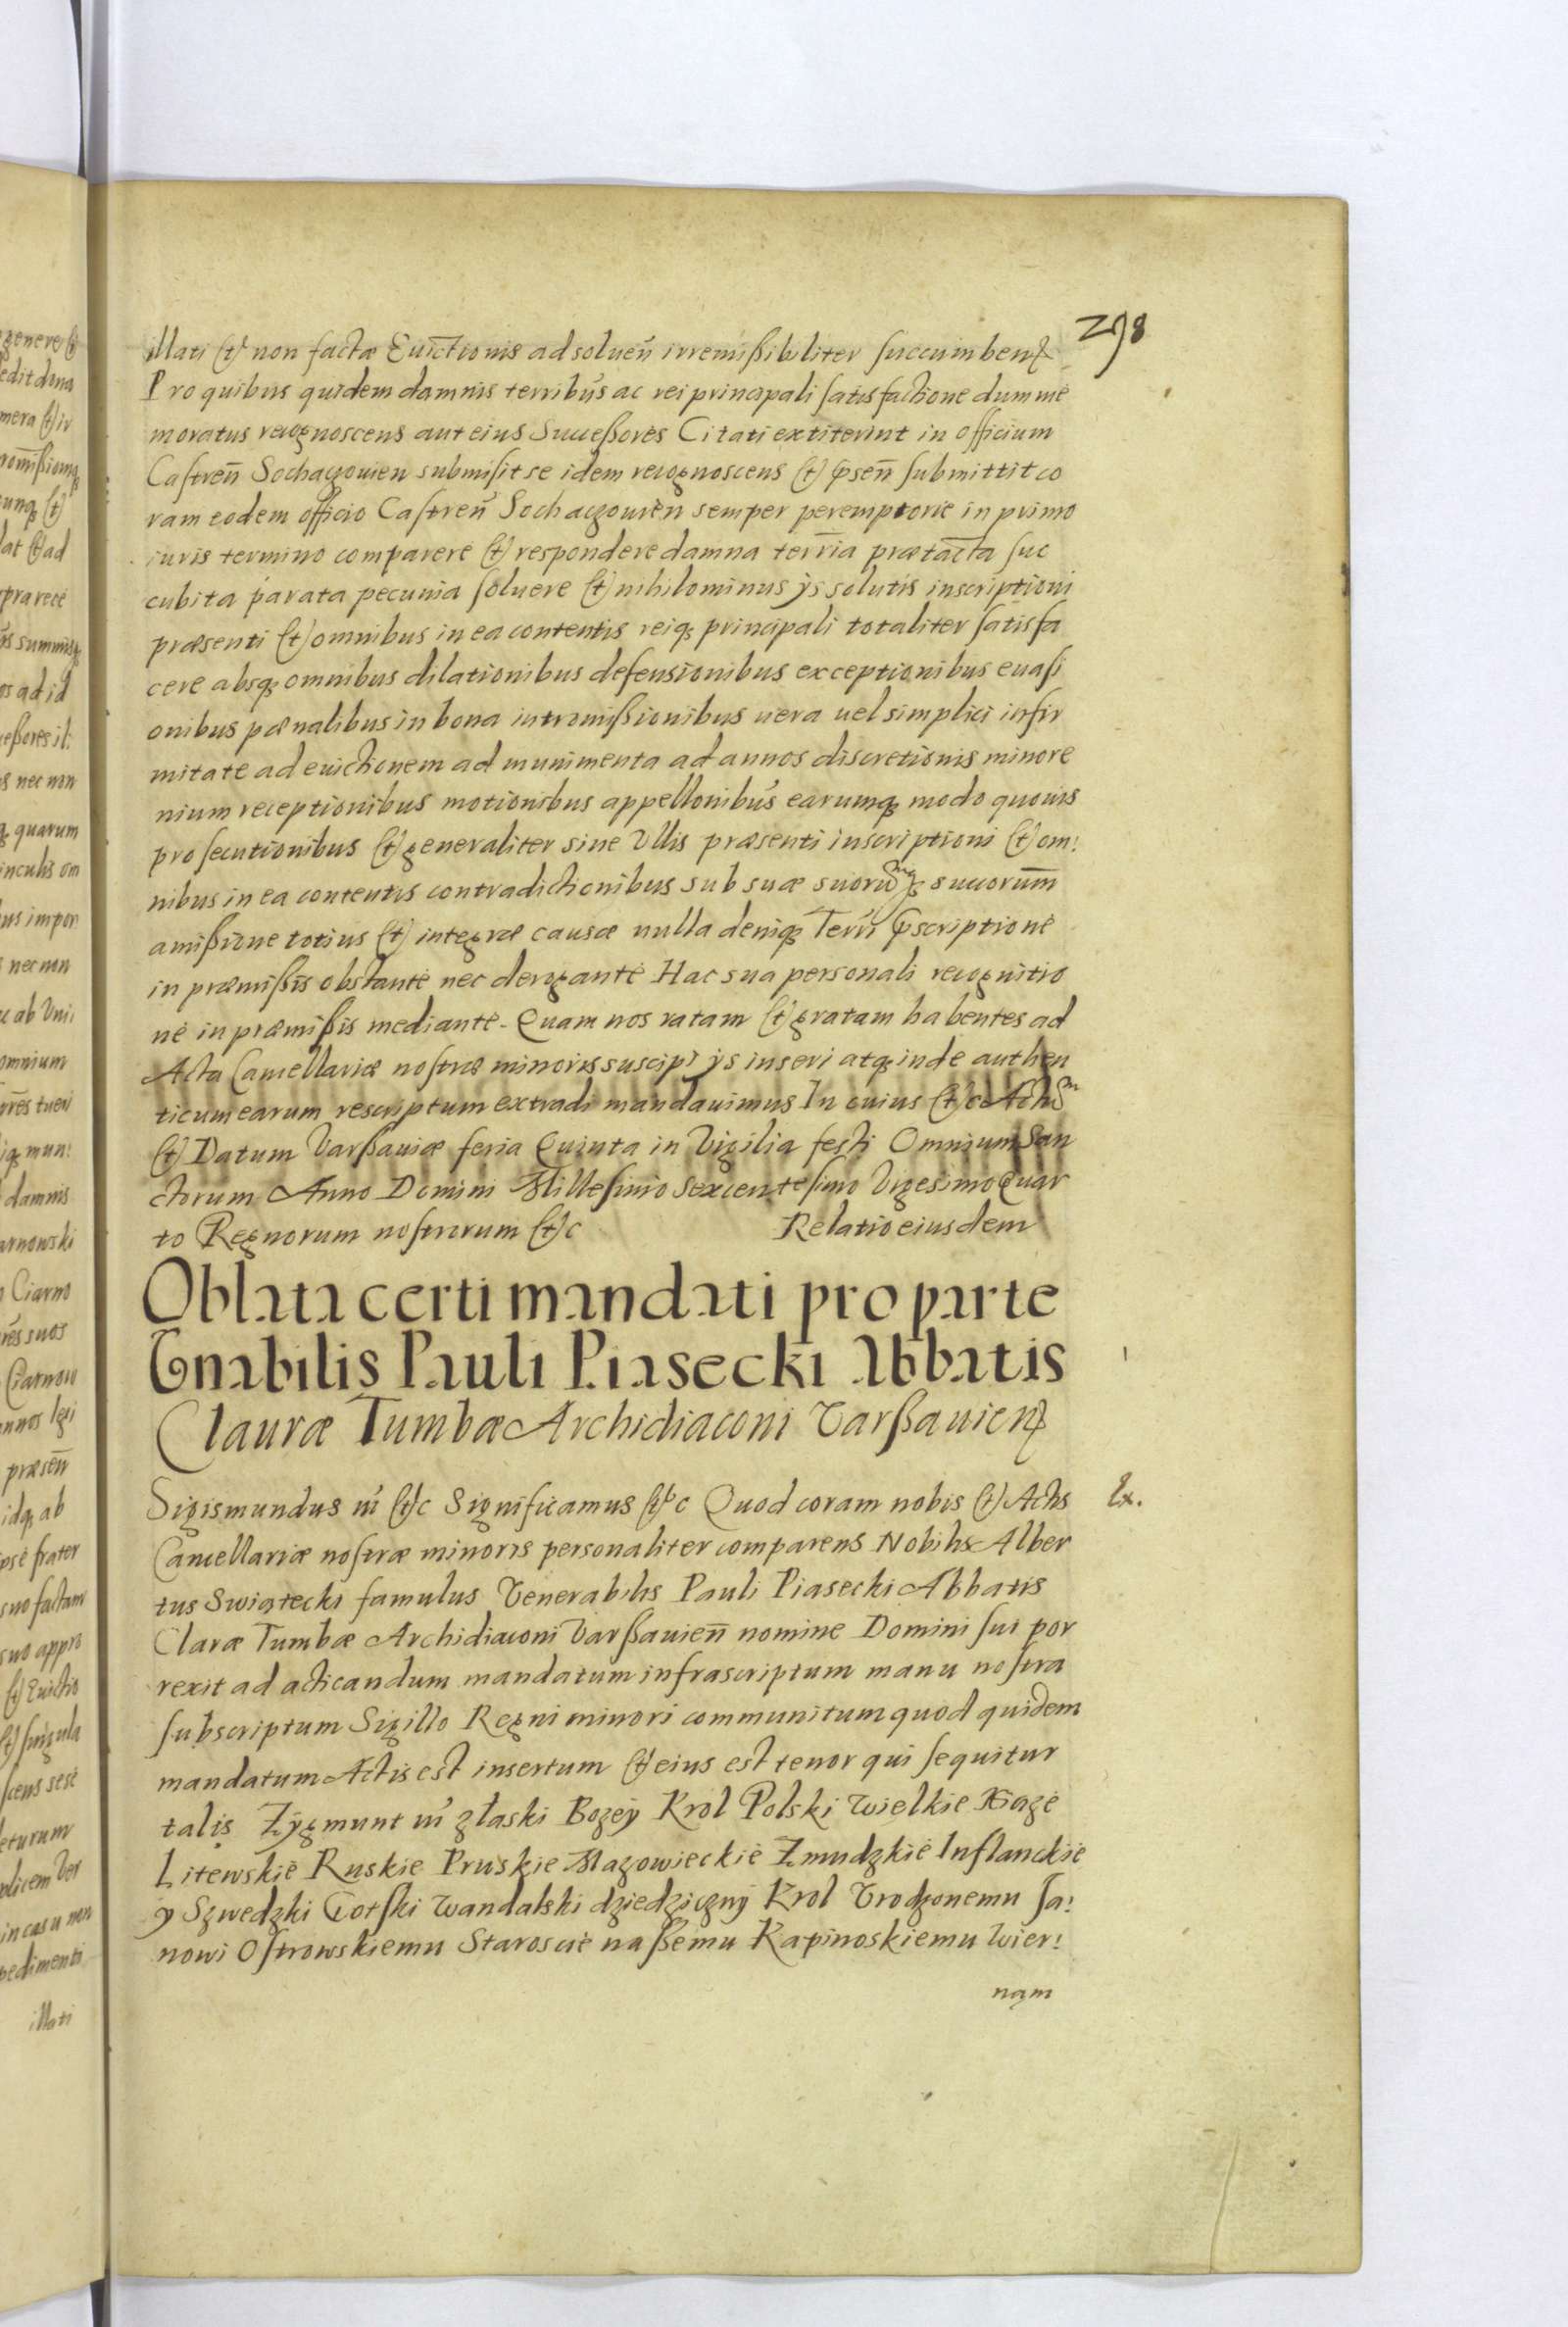 298
illati et non factæ Euictionis ad soluen̄ irremißibiliter succumben̄
Pro quibus quidem damnis terribus ac rei principali satisfactione dum me
moratus recognoscens aut eius Succeßores Citati extiterint in officium
Castren̄ Sochaczouien submisit se idem recognoscens et p̄sen̄ submittit co
ram eodem officio Castren̄ Sochaczouien semper peremptorie in primo
iuris termino comparere et respondere damna terr̄ia prætacta suc
cubita parata pecunia soluere et nihilominus ijs solutis inscriptioni
præsenti et omnibus in ea contentis reiq; principali totaliter satisfa
cere absq; omnibus dilationibus defensionibus exceptionibus euasi
onibus pænalibus in bona intromißionibus uera uel simplici infir
mitate ad euictionem ad munimenta ad annos discretionis minore
nium receptionibus motionibus appellonibus earumq; modo quouis
prosecutionibus et generaliter sine Vllis præsenti inscriptioni et om:
nibus in ea contentis contradictionibus sub suæ suorumq; succorum̄
amißione totius et integræ causæ nulla deniq; Terri p̄scriptione
in præmißis obstante nec derogante Hac sua personali recognitio
ne in præmißis mediante. Quam nos ratam et gratam habentes ad
Acta Cancellariæ nostræ minoris suscipi ijs inseri atq; inde authen
ticum earum rescriptum extradi mandauimus In cuius etc Actum
et Datum Varßauiæ feria Quinta in Vigilia festi Omnium San
ctorum Anno Domini Millesimo Sexcentesimo Vigesimo Quar
to Regnorum nostrorum etc Relatio eiusdem
Oblata certi mandati pro parte
Vnabilis Pauli Piasecki Abbatis
Clauræ Tumbæ Archidiaconi Varßauien̄
Sigismundus iii etc Significamus etc Quod coram nobis et Actis
Ex.
Cancellariæ nostræ minoris personaliter comparens Nobilis Alber
tus Swiątecki famulus Venerabilis Pauli Piasecki Abbatis
Claræ Tumbæ Archidiaconi Varßauien̄ nomine Domini sui por
rexit ad acticandum mandatum infrascriptum manu nostra
subscriptum Sigillo Regni minori communitum quod quidem
mandatum Actis est insertum et eius est tenor qui sequitur
talis Zygmunt iii z łaski Bozey Krol Polski Wielkie Xiąze
Litewskie Ruskie Pruskie Mazowieckie Zmudzkie Inflanckie
y Szwedzki Gotski Wandalski dziedziczny Krol Vrodzonemu Ja:
nowi Ostrowskiemu Staroscie naßemu Kapinoskiemu Wier:
nąm